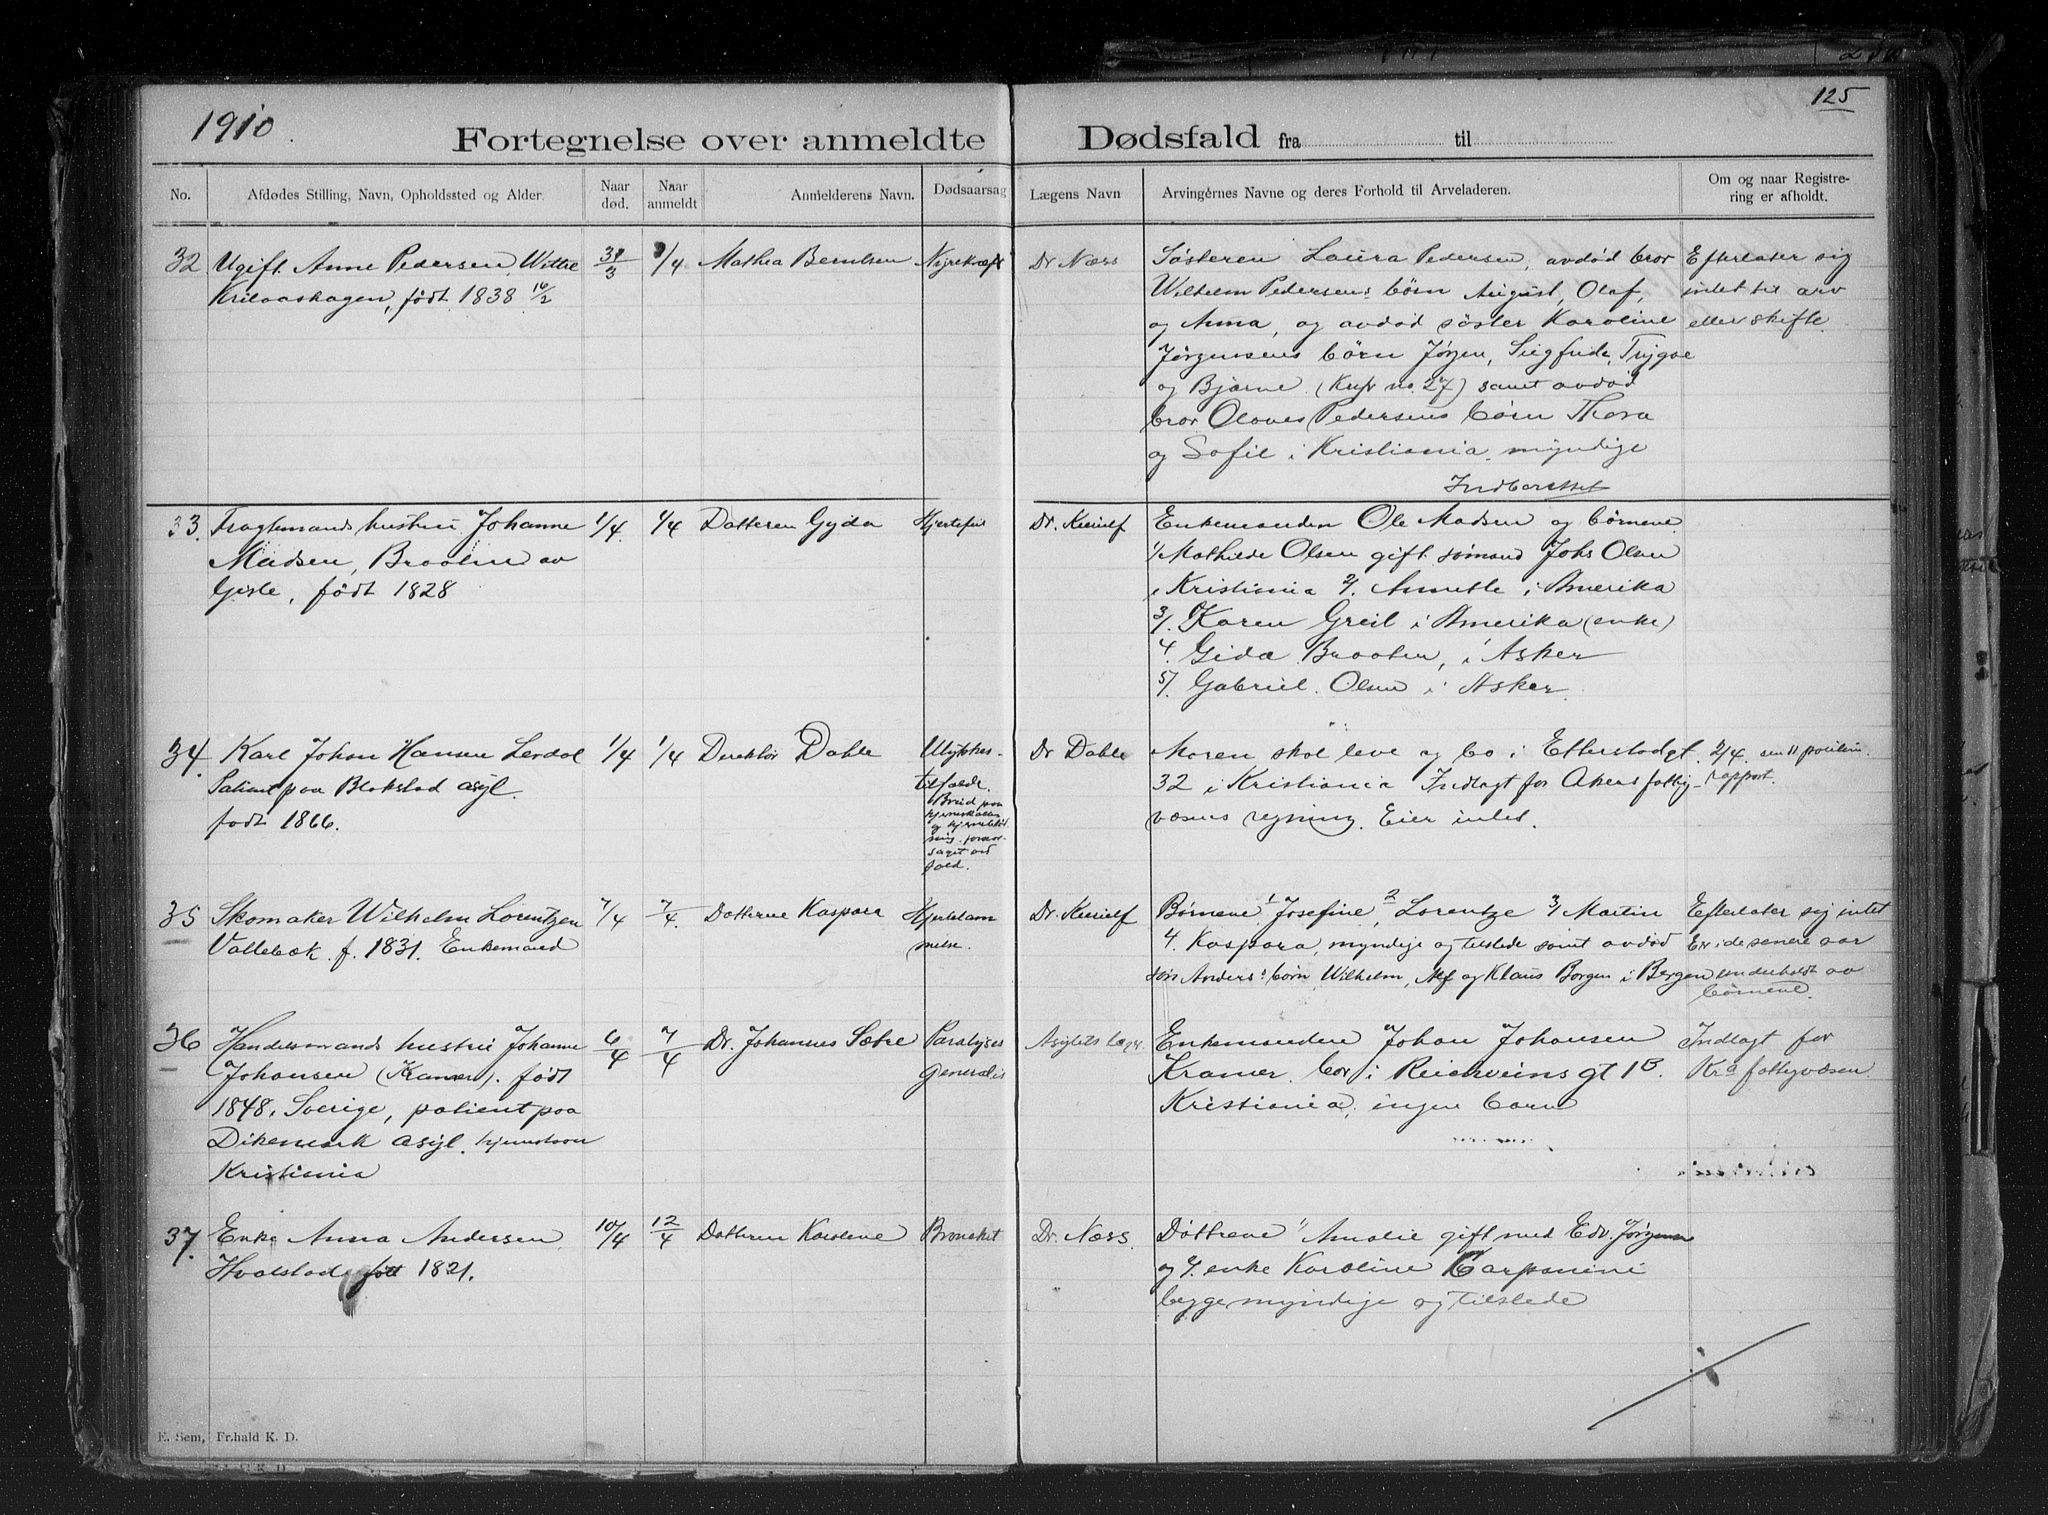 1910.
125
Fortegnelse over anmeldte Dødsfald fra til
No.
Afdødes Stilling, Navn, Opholdssted og Alder.
Naar død.
Naar anmeldt
Anmelderens Navn.
Dødsaarsag
Lægens Navn
Arvingernes Navne og deres Forhold til Arveladeren.
Om og naar Registrering er afholdt.
32
Ugift Anne Pedersen,
født 1838 16/2
31/3
/4
Mathea Berntsen
Nyrekræft
Dr Næss
Søsteren Laura Pedersen, avdød bror
Wilhelm Pedersens børn August, Olaf,
og Anna, og avdød søster Karoline
Jørgensens børn Jørgen, Sigfride, Trygve
og Bjarne (Krfr no. 27) samt avdød
bror Oloves Pedersens børn Thora
og Sofie i Kristiania, myndige
Indberettet
Efterlater sig
intet til arv
eller skifte
33.
Fragtemands hustru Johanne
Madsen, Braaten av
Gisle, født 1828
1/4.
1/4
Datteren Gyda
Hjertefeil
Dr.
Enkemanden Ole Madsen og børnene
1/ Mathilde Olsen gift sømand Johs Olsen
i Kristiania 2/. Annette i Amerika
3/. Karen Greil i Amerika (enke)
4. Gida Braaten, i Asker
5/. Gabriel Olsen i Asker.
34.
Karl Johan Hansen Lerdal
Patient paa Blakstad asyl.
født 1866.
1/4
1/4
Direktør Dahle
Ulykkes-
tilfælde.
Brud paa
hjerneskallen
og hjerneblød
ning. foraar-
saget ved
fald.
Dr Dahle
Moren skal leve og bo i Etterstadgt
32 i Kristiania Indlagt for Akers fattig-
væsens regning. Eier intet.
2/4. sen 11 politim.
rapport.
35
Skomaker Wilhelm Lorentzen
Vallebæk. f. 1831. Enkemand
7/4
7/4
Datterne Kaspara
Hjertelam
melse.
Dr.
Børnene 1 Josefine, 2 Lorentze 3/ Martin
4. Kaspara, myndige og tilstede samt avdød
søn Anders' børn Wilhelm, Alf og Klaus Borgen i Bergen
Efterlater sig intet
Er i de senere aar
underholdt av
børnene.
36
Handelsmands hustru Johanne
Johansen (Kramer). født
1848, Sverige, patient paa
Dikemark asyl. hjemstavn
Kristiania
6/4
7/4
Dr. Johannes Sætre
Paralyses
generalis
Asylets læge.
Enkemanden Johan Johansen
Kramer. bor i Reiersveins gt 1B.
Kristiania, ingen børn
Indlagt for
Kra fattigvæsen.
37.
Enke Anna Andersen
Hvalstad, født 1821.
10/4
12/4
Datteren Karoline
Bronchit
Dr. Næss.
Døttrene 1/ Amalie gift med Edv. Jørgensen
og 2. enke Karoline
begge myndige og tilstede
E. Sem, Fr.hald K. D.